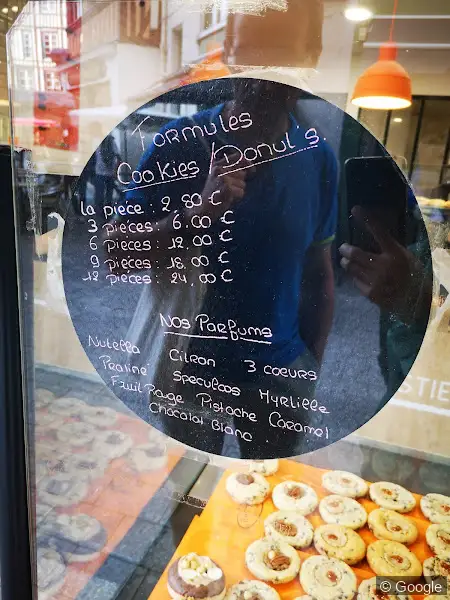 Formules
Cookies/Donut's.
la pièce : 2.80 €
3 pièces : 6.00 €
6 pièces : 12,00 €
9 pièces : 18.00 €
12 pièces : 24,00 €
Nos Parfums
Nutella Citron 3 coeurs
Praliné Speculoos Myrtille
Fruit Rouge Pistache Caramel
Chocolat Blanc
STIE
© Google